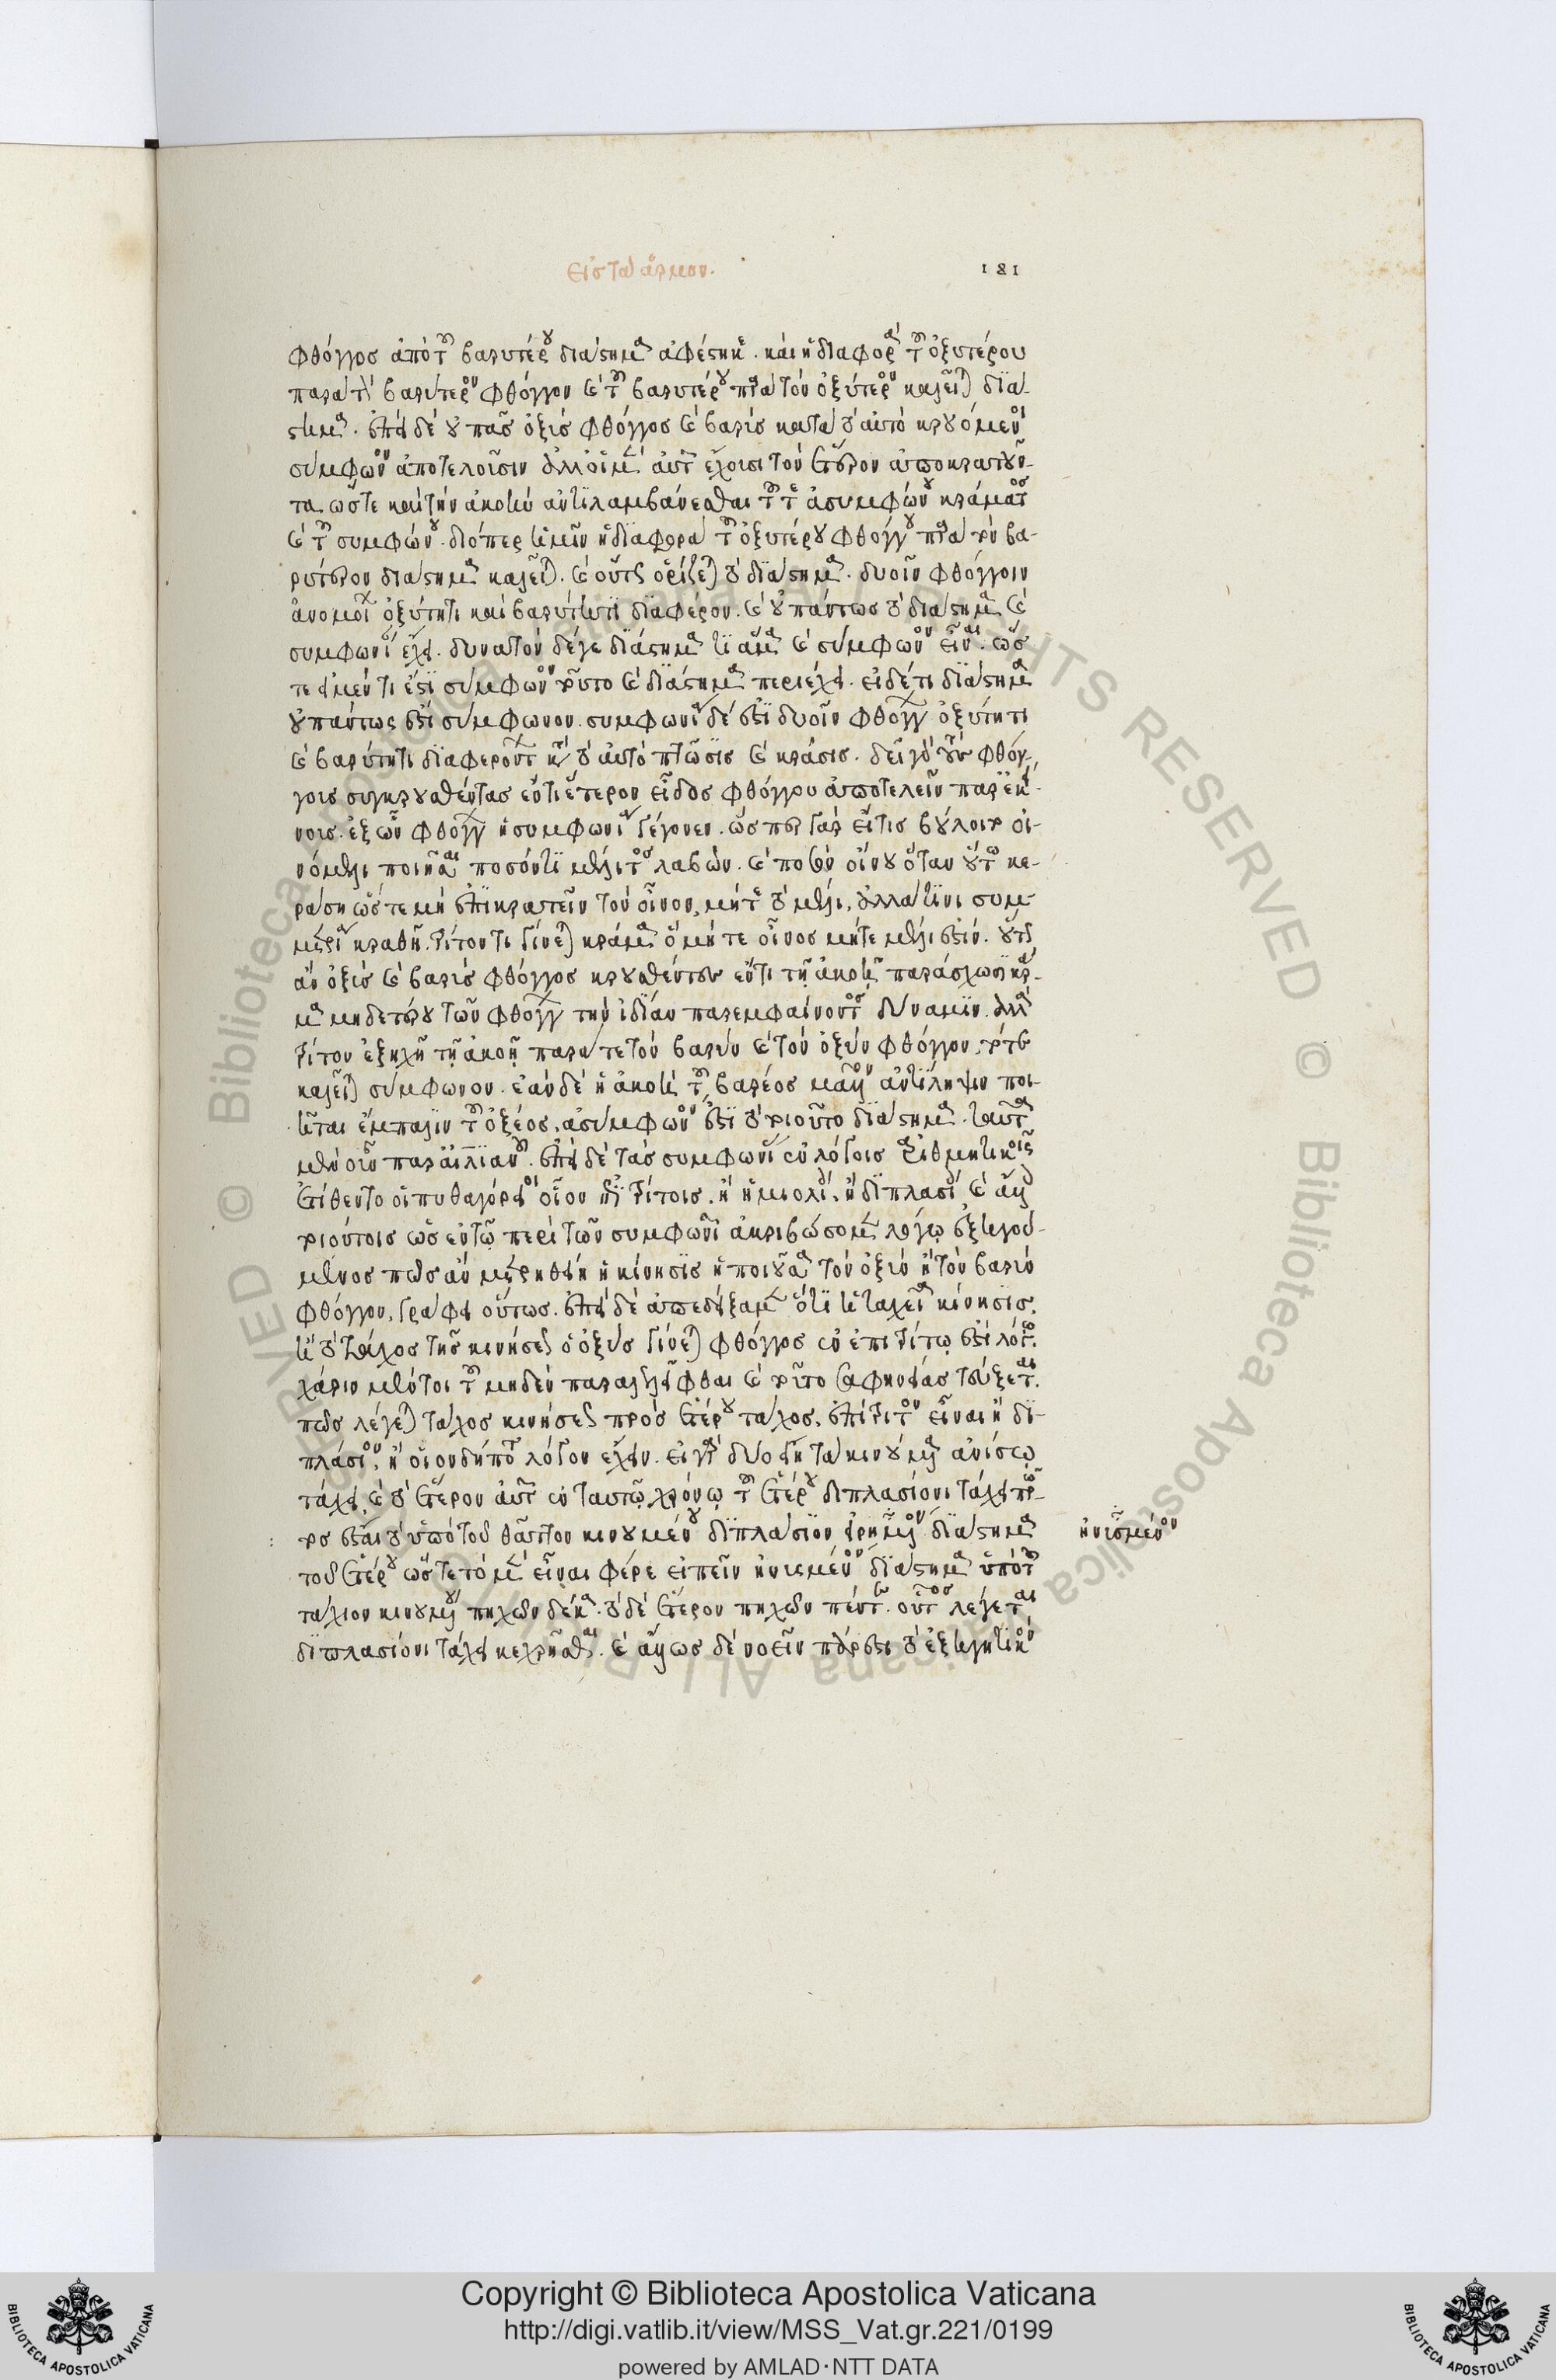 Εἰς τὰ ἁρμον.
181
φθόγγος ἀπὸ τοῦ βαρυτέρου διαστήματα ἀφέστηκε. καὶ ἡ διαφορὰ τοῦ ὀξυτέρου
παρὰ τὸν βαρύτερον φθόγγον καὶ τοῦ βαρυτέρου παρὰ τὸν ὀξύτερον καλεῖται διά-
στημα. ἐπεὶ δὲ οὐ πᾶς ὀξὺς φθόγγος καὶ βαρὺς κατὰ τὸ αὐτὸ κρουόμενοι
σύμφωνον ἀποτελοῦσιν ἀλλ' οἱ μὲν αὐτῶν ἔχουσι τὸν ἕτερον ἀποκρατοῦν-
τα ὥστε καὶ τὴν ἀκοὴν ἀντιλαμβάνεσθαι τοῦ τε ἀσυμφώνου κράματος
καὶ τοῦ συμφώνου. διόπερ ἡ μὲν διαφορὰ τοῦ ὀξυτέρου φθόγγου παρὰ τὸν βα-
ρύτερον διάστημα καλεῖται. καὶ οὕτως ὁρίζεται τὸ διάστημα. δυοῖν φθόγγοιν
ἀνομοίων ὀξύτητι καὶ βαρύτητι διαφέρον. καὶ οὐ πάντως τὸ διάστημα καὶ
συμφωνίαν ἔχει. δυνατὸν δέ γε διάστημά τι ἅμα καὶ σύμφωνον εἶναι. ὥσ
τε εἰ μέν τί ἐστι σύμφωνον τοῦτο καὶ διάστημα περιέχει. εἰ δέ τι διάστημα
οὐ πάντως ἐστὶ σύμφωνον. συμφωνία δέ ἐστι δυοῖν φθόγγων ὀξύτητι
καὶ βαρύτητι διαφερόντων κατὰ τὸ αὐτὸ πτῶσις καὶ κρᾶσις. δεῖ γὰρ τοὺς φθόγ-
γους συγκρουσθέντας ἕν τι ἕτερον εἶδος φθόγγου ἀποτελεῖν παρ' ἐκεί-
νους ἐξ ὧν φθόγγων ἡ συμφωνία γέγονεν. ὥσπερ γὰρ εἴ τις βούλοιτο οἰ-
νόμελι ποιῆσαι ποσόν τι μέλιτος λαβὼν καὶ ποσὸν οἴνου ὅταν οὕτω κε-
ράσῃ ὥστε μὴ ἐπικρατεῖν τὸν οἶνον, μήτε τὸ μέλι, ἀλλά τινι συμ-
μετρίᾳ κραθῇ. τρίτον τι γίνεται κράμα ὃ μήτε οἶνος μήτε μέλι ἐστίν. οὕτως
ἂν ὀξὺς καὶ βαρὺς φθόγγος κρουσθέντων ἕν τι τῇ ἀκοῇ παράσχωσι κρᾶ-
μα μηδετέρου τῶν φθόγγων τὴν ἰδίαν παρεμφαίνοντος δύναμιν. ἀλλὰ
τρίτον ἐξηχῇ τῇ ἀκοῇ παρά τε τὸν βαρὺν καὶ τὸν ὀξὺν φθόγγον, τότε
καλεῖται σύμφωνον. ἐὰν δὲ ἡ ἀκοὴ τοῦ βαρέος μᾶλλον ἀντίληψιν ποι-
ῆται ἔμπαλιν τοῦ ὀξέος, ἀσύμφωνόν ἐστι τὸ τοιοῦτο διάστημα. ταῦτα
μὲν οὖν παρ' Αἰλιανοῦ. ἐπεὶ δὲ τὰς συμφωνίας ἐν λόγοις ἀριθμητικοῖς
ἐτίθεντο οἱ πυθαγόρειοι οἷον ἐπιτρίτοις. ἢ ἡμιολίοις, ἢ διπλασίοις καὶ ἄλλοις
τοιούτοις ὡς ἐν τῷ περὶ τῶν συμφωνιῶν ἀκριβώσομεν λόγῳ ἐξηγού-
μενος πῶς ἂν μετρηθείη ἡ κίνησις ἡ ποιοῦσα τὸν ὀξὺν ἢ τὸν βαρὺν
φθόγγον, γράφει οὕτως. ἐπεὶ δὲ ἀπεδείξαμεν ὅτι ἡ ταχεῖα κίνησις,
ἢ τὸ τάχος τῆς κινήσεως ὁ ὀξὺς γίνεται φθόγγος ἐν ἐπιτρίτῳ ἐστὶ λόγῳ.
χάριν μέντοι τοῦ μηδὲν παραλελεῖφθαι καὶ τοῦτο σαφηνείας τεύξεται.
πῶς λέγεται τάχος κινήσεως πρὸς ἑτέρου τάχος, ἐπίτριτον εἶναι ἢ δι-
πλάσιον, ἢ οἱονδήποτε λόγον ἔχειν. εἰ γὰρ δύο εἴη τὰ κινούμενα ἀνίσῳ
τάχει, καὶ τὸ ἕτερον αὐτῶν ἐν ταὐτῷ χρόνῳ τοῦ ἑτέρου διπλασίονι τάχει
τὸ ὑπὸ τοῦ θᾶττον κινουμένου διπλάσιον εἰρημένον διάστημα
ἠνυσμένον
τοῦ ἑτέρου ὥστε τὸ μὲν εἶναι φέρε εἰπεῖν ἠνυσμένον διάστημα ὑπὸ τοῦ
τάχιον κινουμένου πηχῶν δέκα. τὸ δὲ ἕτερον πηχῶν πέντε. οὗτος λέγεται
διπλασίονι τάχει κεχρῆσθαι. καὶ ἄλλως δὲ νοεῖν πάρεστι τὸ ἐξηγητικὸν
Copyright © Biblioteca Apostolica Vaticana
http://digi.vatlib.it/view/MSS_Vat.gr.221/0199
powered by AMLAD·NTT DATA